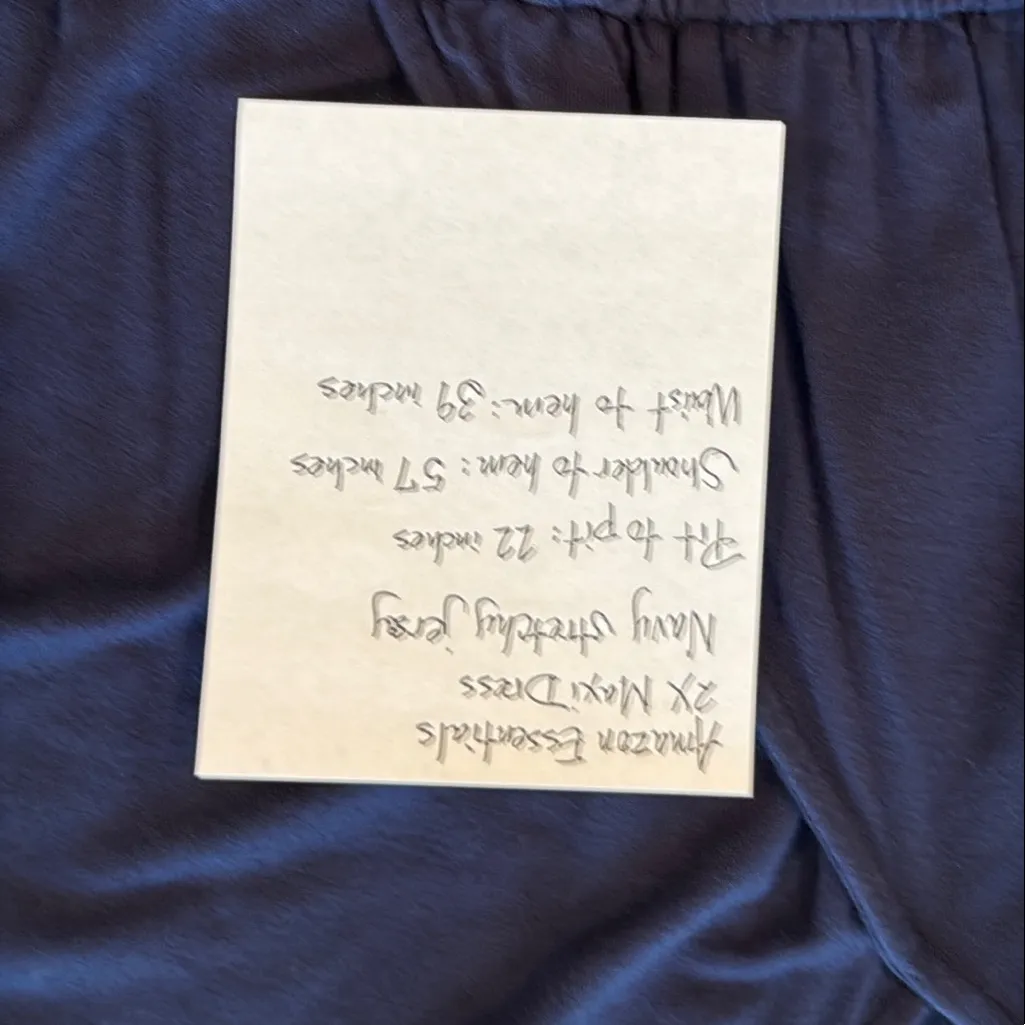 Amazon Essentials
2X Maxi Dress
Navy stretchy jersey
Pit to pit: 22 inches
Shoulder to hem: 57 inches
Waist to hem: 39 inches